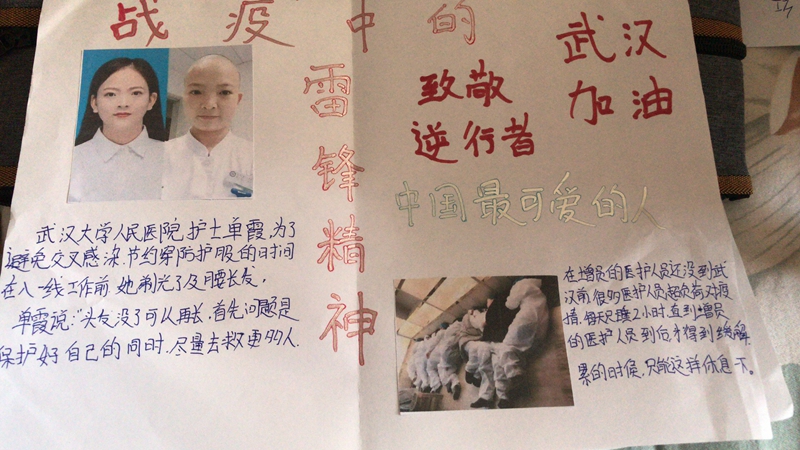 战疫中的
雷锋精神
致敬
逆行者
武汉
加油
中国最可爱的人
武汉大学人民医院护士单霞,为了
避免交叉感染.节约穿防护服的时间
在入一线工作前她剃光了及腰长发,
单霞说:“头发没了可以再长.首先问题是
保护好自己的同时.尽量去救更多人.
在增员的医护人员还没到武
汉前很多医护人员超负荷对疫
情.每天只睡2小时.直到增员
的医护人员到后才得到缓解
累的时候,只能这样休息一下。